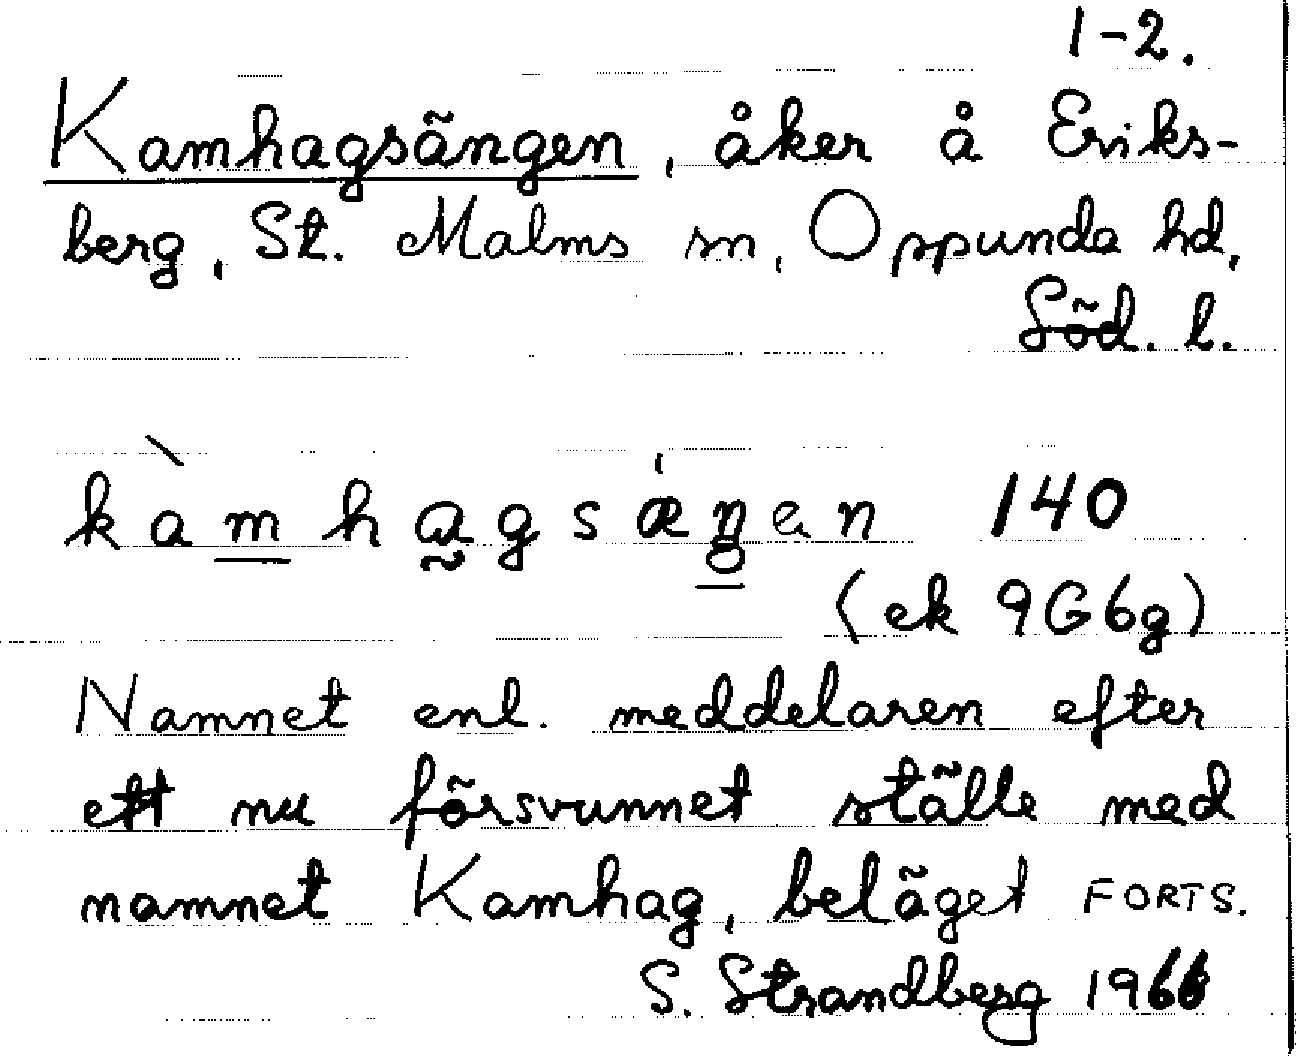 1-2.
Kamhagsängen, åker å Eriks-
berg, St. Malms sn, Oppunda hd,
Söd. l.
kàmhagsáŋen 140
(ek 9G6g)
Namnet enl. meddelaren efter
ett nu försvunnet ställe med
namnet Kamhag, beläget FORTS.
S. Strandberg 1966